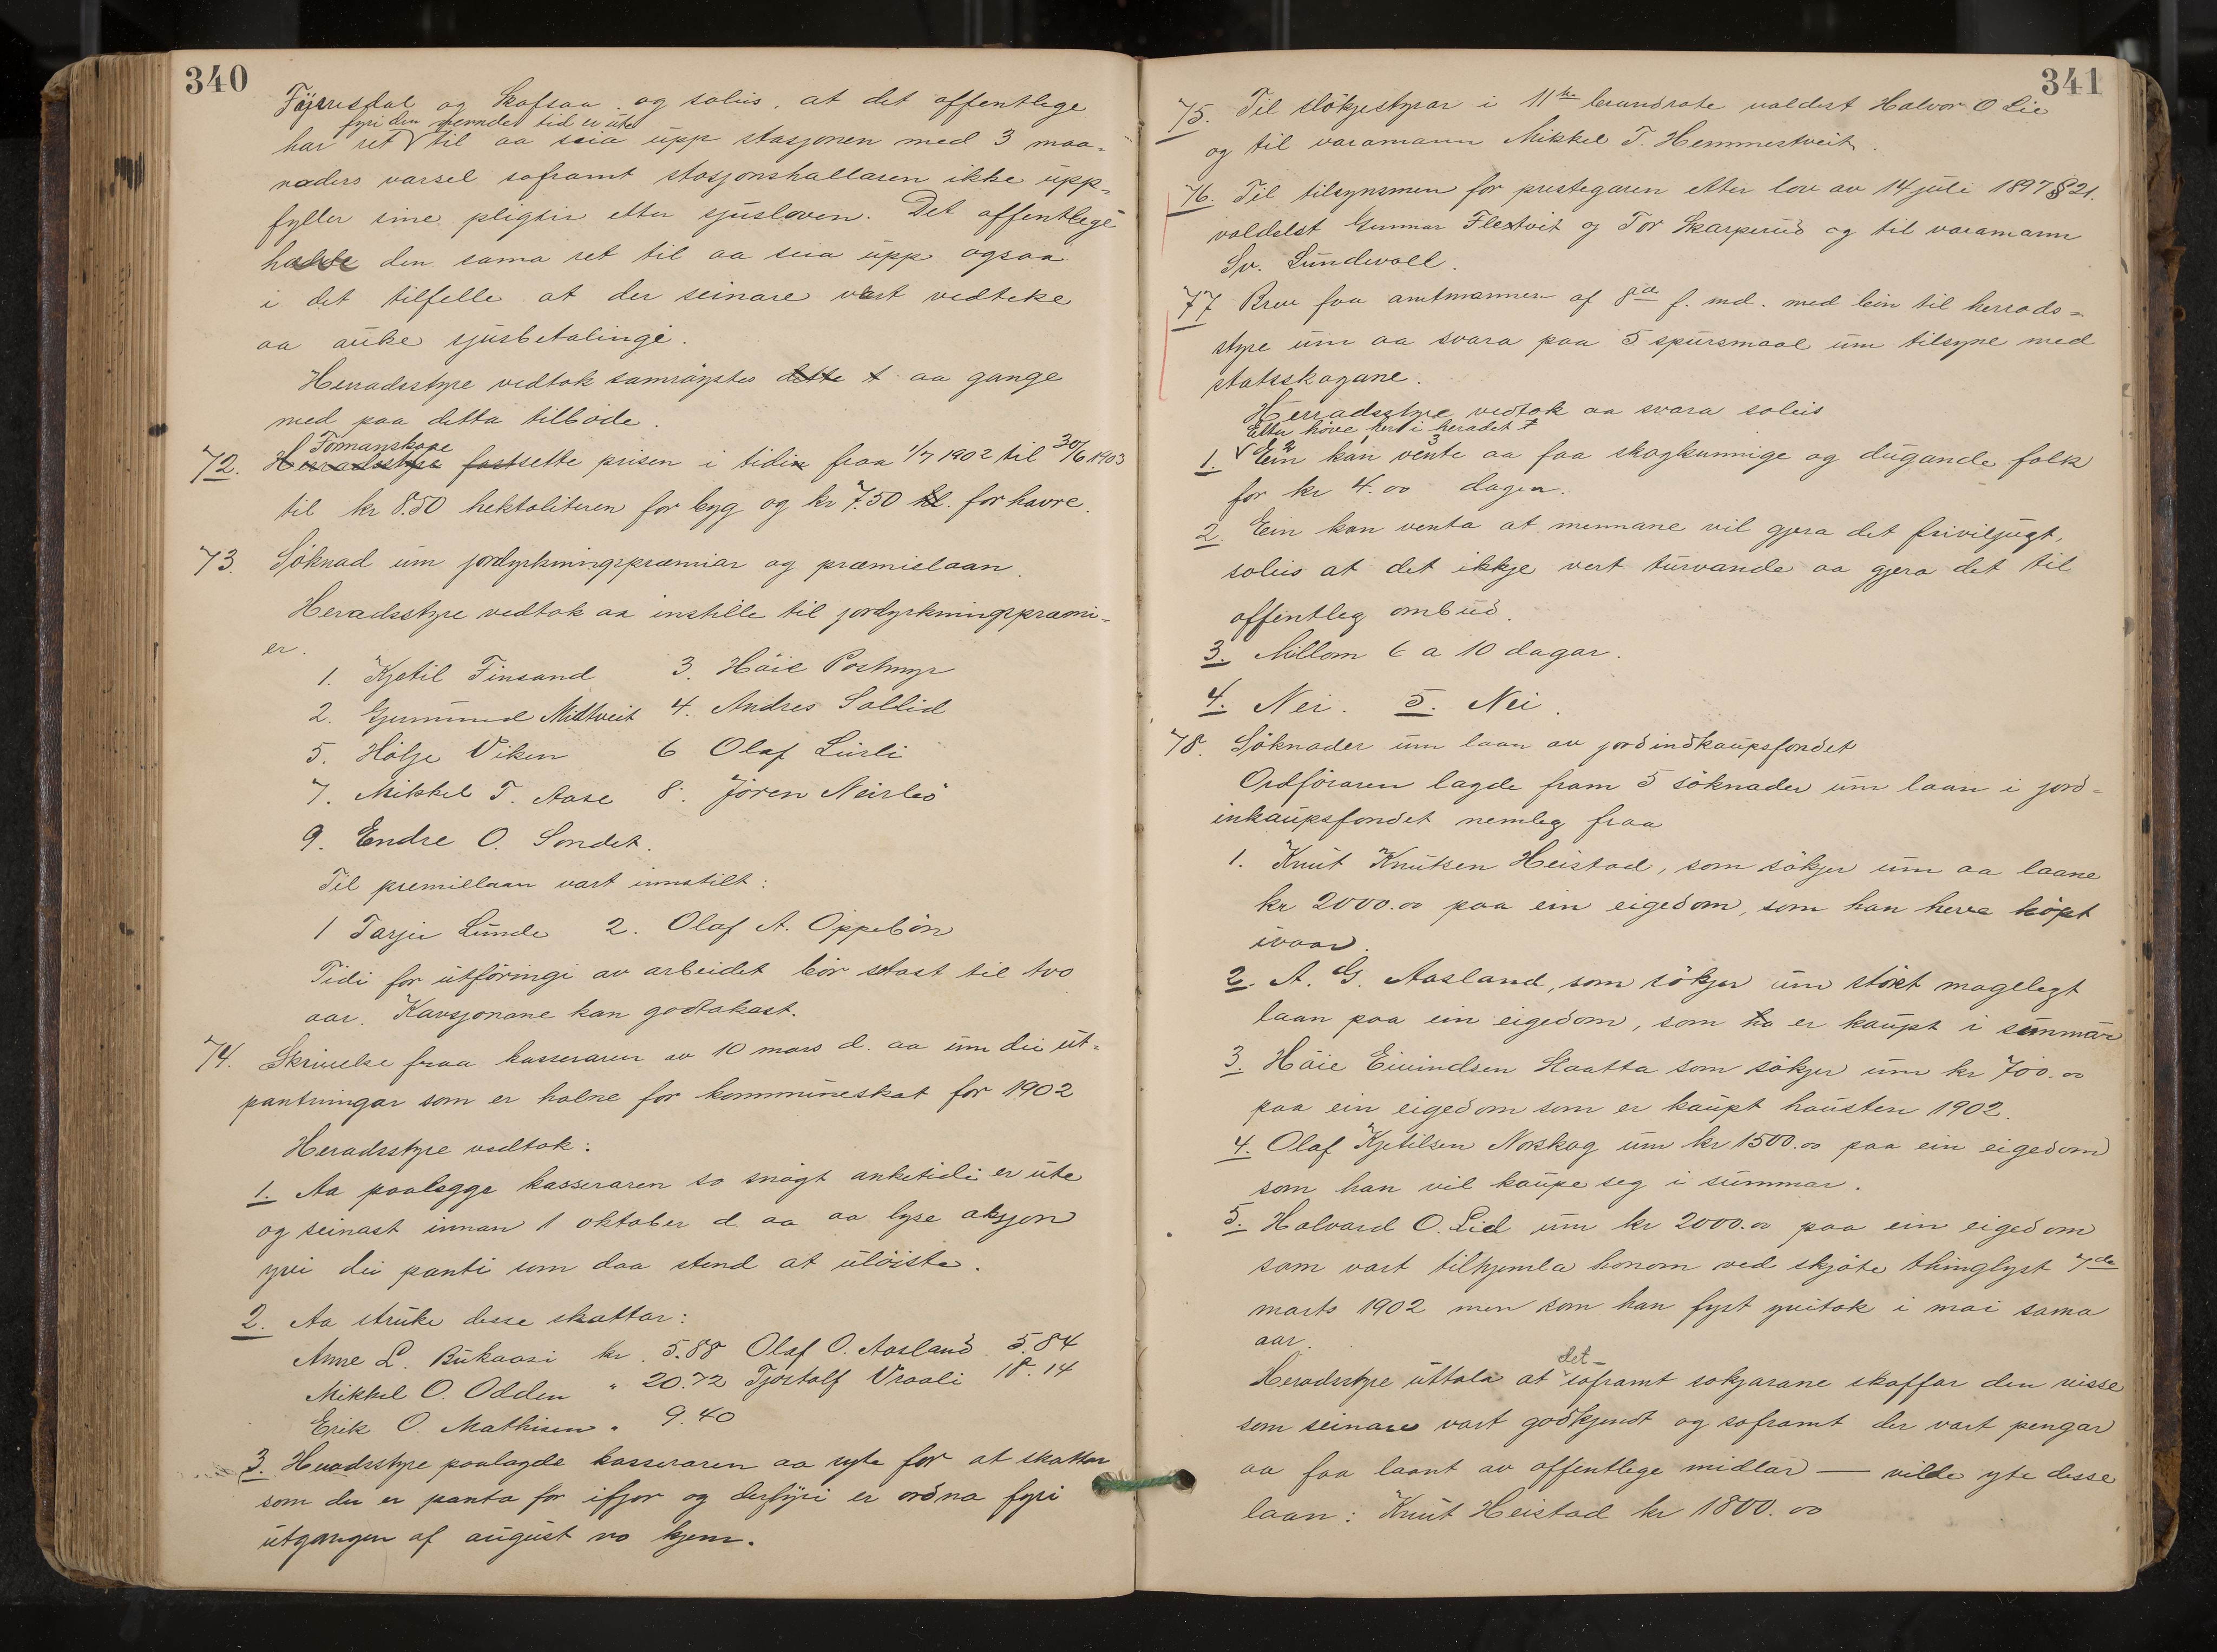 340
Fyrresdal og Skafsaa og soleis, at det offentlege
fyri den nemnde tid er ute
har ret til aa seia upp stasjonen med 3 maa-
naders varsel soframt stasjonshallaren ikke upp-
fyller sine pligtir etter sjusloven. Det offentlege
havde den sama ret til aa seia upp ogsaa
i det tilfelle at der seinare vert vedteke
aa auke sjusbetalingi.
Herradsstyre vedtok samrøystes dette t aa gange
med paa detta tilbode.
Formanskape
72. Herradsstyre fastsette prisen i tidin fraa 1/7 1902 til 30/6 1903
til kr 8.50 hektoliteren for byg og kr 7.50 hl. for havre.
73. Söknad um jordyrkningspræmiar og præmielaan.
Heradsstyre vedtok aa instille til jordyrkningspræmi-
er.
1. Kjetil Finsand 3. Häie Postmyr
2. Gunnund Midtveit 4. Andres Sollid
5. Hölje Viken 6 Olaf Lusli
7. Mikkel T. Aase 8. Jören Neirlö
9. Endre O. Sondet.
Til premielaan vart innstilt:
1 Tarjei Lunde 2. Olaf A. Oppebön
Tidi for utföringi av arbeidet bör setast til tvo
aar. Kavsjonane kan godtakast.
74. Skrivelse fraa kasseraren av 10 mars d. aa um dei ut-
pantningar som er haldne for kommuneskat for 1902
Heradsstyre vedtok:
1. Aa paalegge kasseraren so snögt anketidi er ute
og seinast innan 1 oktober d. aa aa lyse aksjon
yvi dei panti som daa stend at ulöiste.
2. Aa struke desse skattar:
Anne L. Bukaasi kr. 5.88 Olaf O. Aasland 5.84
Mikkel O. Odden " 20.72 Tjostolf Vraali 18.14
Erik O. Mathisen " 9.40
3. Heradsstyre paalagde kasseraren aa syte for at skatten
som der er panta for ifjor og derfyri er ordna fyri
utgangen af august no kjem.
341
75. Til slökjestyrar i 11te brandrote valdest Halvor O Lie
og til varamann Mikkel T. Hemmestveit.
76. Til tilsynsmen for prestegaren etter lov av 14 juli 1897 § 21.
valdest Gunnar Flextvit og Tor Skarperud og til varamann
Sv. Lundevall.
77 Brev fraa amtmannen af 8de f. md. med bön til herrads-
styre um aa svara paa 5 spursmaal um tilsyne med
statsskogane.
Herradsstyre vedtok aa svara soleis
Etter höve her i heradet
1. Ein kan vente aa faa skogkunnige og dugande folk
for kr 4.00 dagen.
2. Ein kan venta at mennane vil gjera det friviljugt,
soleis at det ikkje vert turvande aa gjera det til
offentleg ombud.
3. Millom 6 a 10 dagar.
4. Nei. 5. Nei.
78. Söknader um laan av jordindkaupsfondet
Ordföraren lagde fram 5 söknader um laan i jord-
inkaupsfondet nemleg fraa
1. Knut Knutsen Heistad, som sökjer um aa laane
kr 2000.00 paa ein eigedom, som han heve köpt
ivaar.
2. A. G. Aasland, som sökjer um störst mogelegt
laan paa ein eigedom, som ha er kaupt i summar
3. Häie Eivindsen Haatta som sökjer um kr 700.00
paa ein eigedom som er kaupt hausten 1902.
4. Olaf Kjetilsen Norskog um kr 1500.00 paa ein eigedom
som han vil kaupe seg i summar.
5. Halvard O. Lid um kr 2000.00 paa ein eigedom
som vart tilhjemla honom ved skjöte thinglyst 7de
marts 1902 men som han fyst yvitok i mai sama
aar.
det
Heradsstyre uttala at soframt sökjarane skaffar den visse
som seinare vart godkjendt og soframt der vart pengar
aa faa laant av offentlege midlar — vilde yte desse
laan: Knut Heistad kr 1800.00